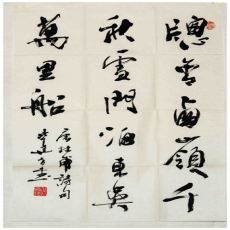 窗含西嶺千
秋雪門泊東吳
萬里船
唐杜甫詩句